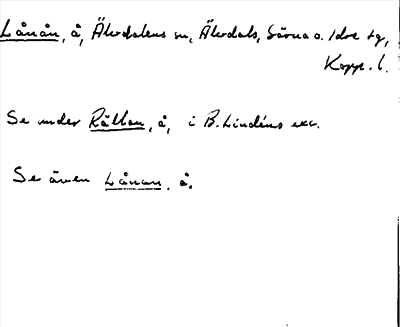 Lånån, å, Älvdalens sn, Älvdals, Särna o. Idre tg,
Kopp. l.
Se under Råttan, å, i B. Lindéns exc.
Se även Lånan, å.